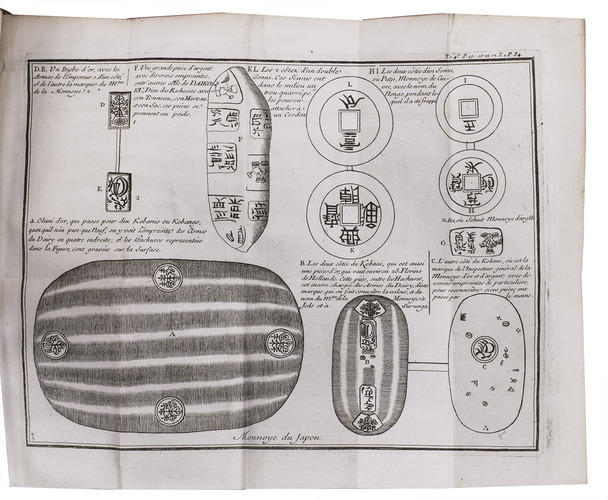 D.E. Un Itsebo d'or, avec les
Armes de l'Empereur, d'un côté,
& de l'autre la marque du M.tre
de la Monnoye. 2.
F. Une grande pièce d'argent
avec diverses empreintes,
entr'autres celle de DAIKO-
KS, Dieu des Richesses avec
son Tonneau, son Marteau
et son Sac, ces pièces se
prennent au poids.
K L. Les 2 côtez d'un double
Senni. Ces Sennis ont
dans le milieu un
trou quarré po.r
les pouvoir
attacher à
un Cordon
H I. Les deux côtez d'un Senni,
ou Putjé, Monnoye de Cui-
vre, avec le nom du
Nengo, pendant le-
quel il a été frappé
D
1
E
2
F
L
K
I
H
G. Its, ou Schuit Monnoye d'argent
G
A. Obani d'or, qui passe pour dix Kobanis ou Kobangs,
quoi qu'il n'en pese que Neuf, on y voit l'empreinte des Armes
du Dairy en quatre endroits, & les Hachures representées
dans la Figure, sont gravées sur la Surface.
B. Les deux côtez du Kobani, qui est aussi
une pièce d'or, qui vaut environ 23. Florins
de Hollande. Cette pièce, outre les Hachures,
est encore chargée des Armes du Dairy, d'une
marque, qui en fait connoître la valeur, et du
nom du M.tre de la Monnoye, à
Jedo et à Surunga.
C. L'autre côté du Kobani, où est la
marque de l'Inspecteur général de la
Monnoye d'or et d'argent; avec di-
verses empreintes de particuliers,
pour reconnoître si ces pièces ont
passé par les mains
A
B
C
Monnoye du Japon.